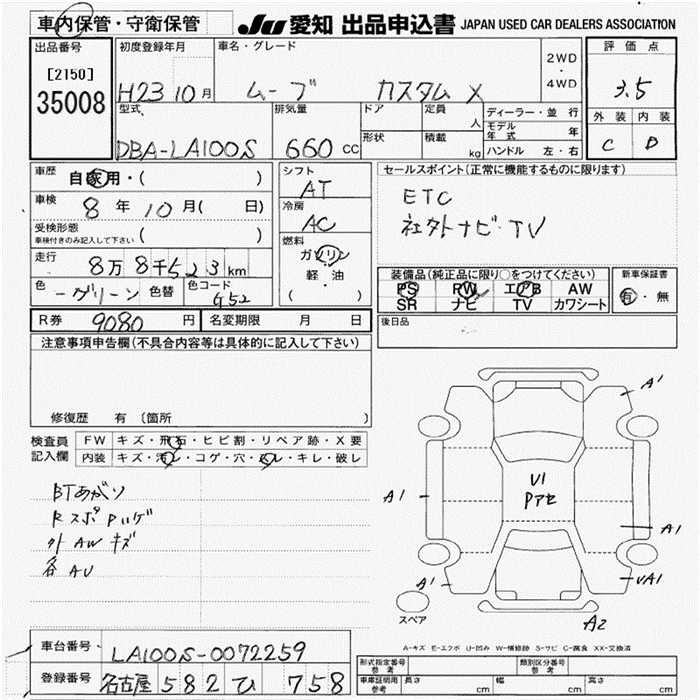 車内保管・守衛保管 JU 愛知 出品申込書 JAPAN USED CAR DEALERS ASSOCIATION
出品番号 [2150] 35008
初度登録年月 H23 10月
車名・グレード ムーブ カスタム X
2WD ・ 4WD
評価点 3.5
外装 内装
C D
型式 DBA-LA100S
排気量 660 CC
ドア 定員 人
形状 積載 kg
ディーラー・並行
モデル年式 年
ハンドル 左・右
車歴 自家用・( )
車検 8年10月( 日)
受検形態 車検付きのみ記入して下さい ( )
走行 8万8千523km
色 グリーン 色替 色コード G52
シフト AT
冷房 AC
燃料 ガソリン 軽・油 ( )
セールスポイント(正常に機能するものに限ります)
ETC
社外ナビ・TV
装備品(純正品に限り○をつけてください)
PS PW エアB AW
SR ナビ TV カワシート
新車保証書
有・無
R券 9080円 名変期限 月 日
後日品
注意事項申告欄(不具合内容等は具体的に記入して下さい)
修復歴 有 〔箇所 〕
検査員記入欄
FW キズ・飛石・ヒビ割・リペア跡・X要
内装 キズ・汚レ・コゲ・穴・スレ・キレ・破レ
BTあがり
外AWキズ
各AU
A1
A1
U1
Pアセ
A1
A1
UA1
A2
スペア
A-キズ E-エクボ U-凹み W-補修跡 S-サビ C-腐食 XX-交換済
車台番号 LA100S-0072259
登録番号 名古屋 582 ひ 758
形式指定番号 参考 類別区分番号 参考
車庫証明用 参考 長さ cm 幅 cm 高さ cm